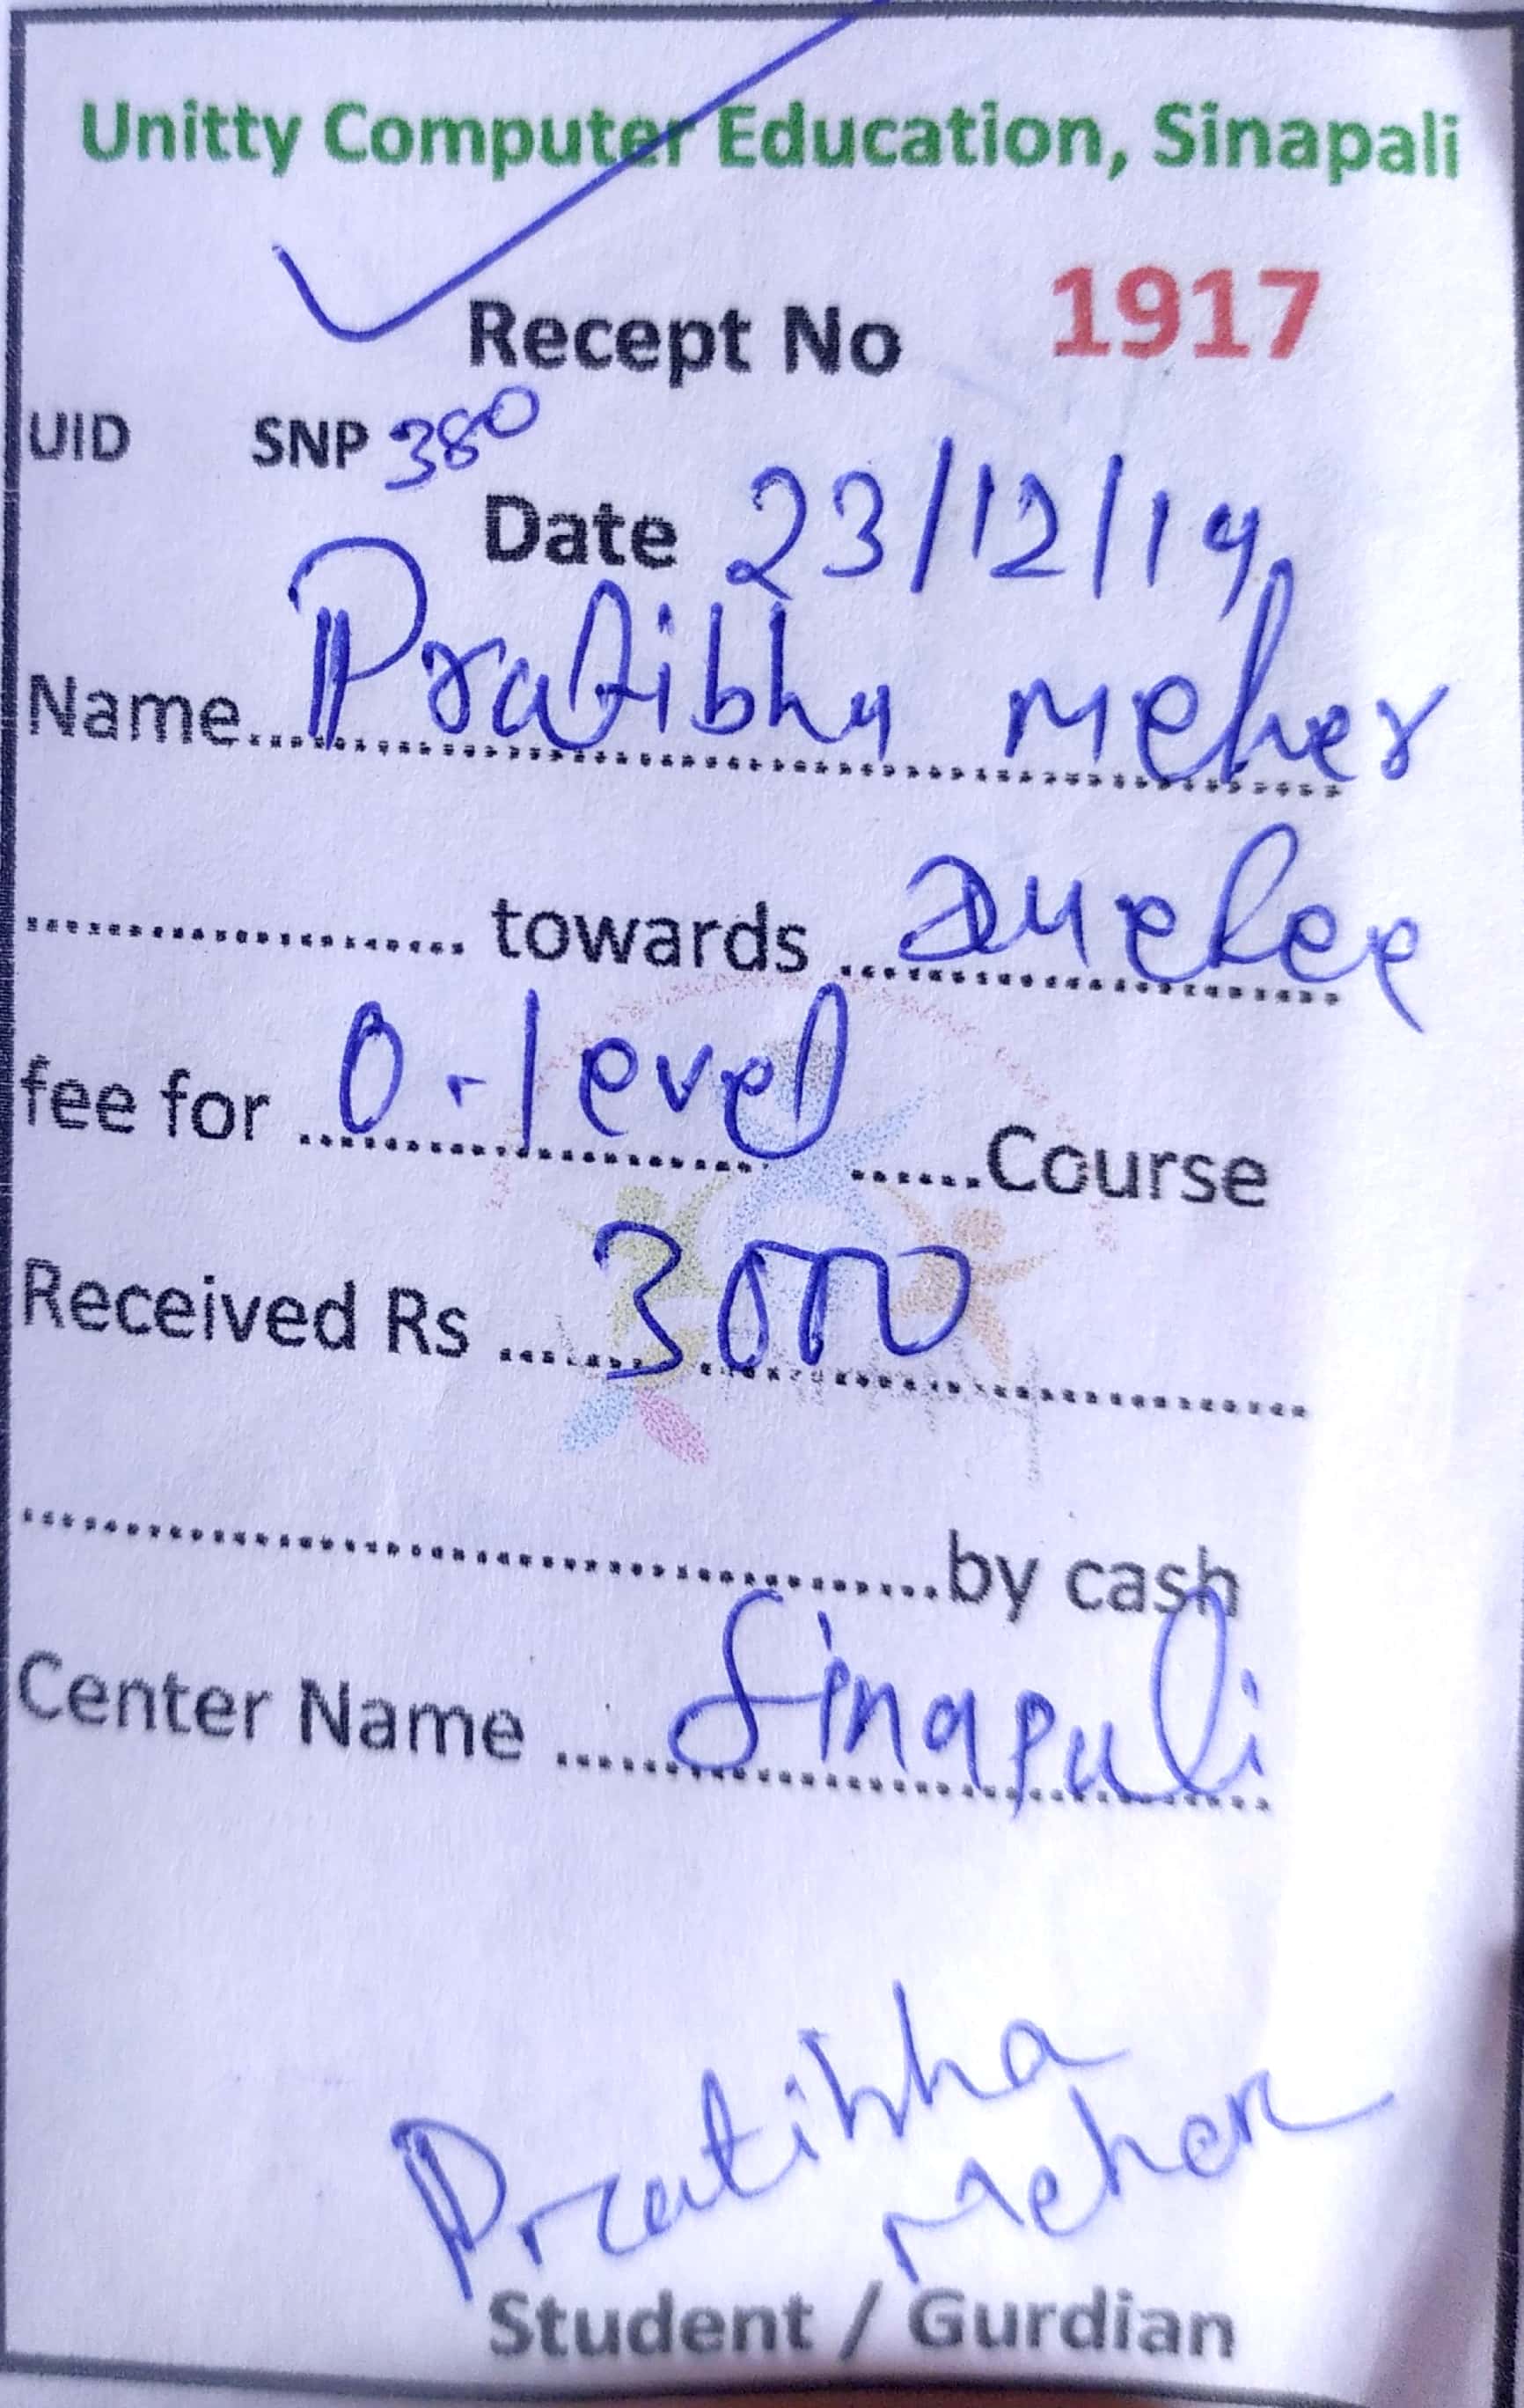 Unitty Computer Education, Sinapali
Recept No 1917
UID SNP 380
Date 23/12/19
Name Pratibha Meher
towards
fee for O-level Course
Received Rs 3000
by cash
Center Name Sinapali
Pratibha
Meher
Student / Gurdian